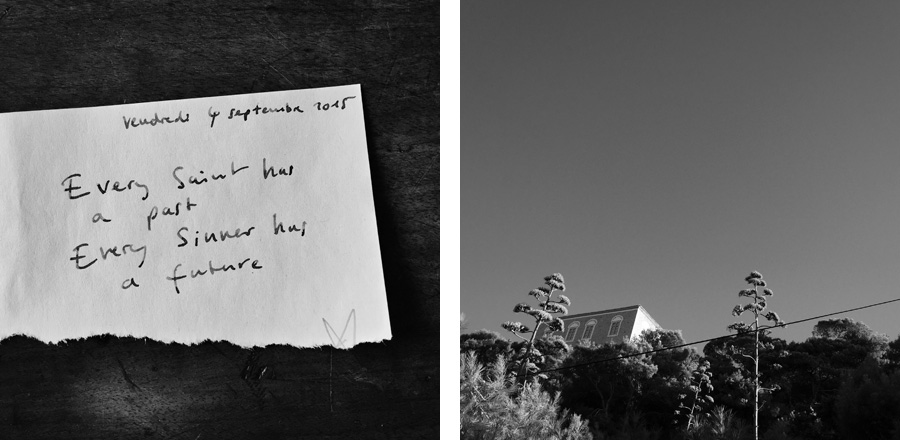 Vendredi 4 septembre 2015
Every Saint has
a past
Every Sinner has
a future